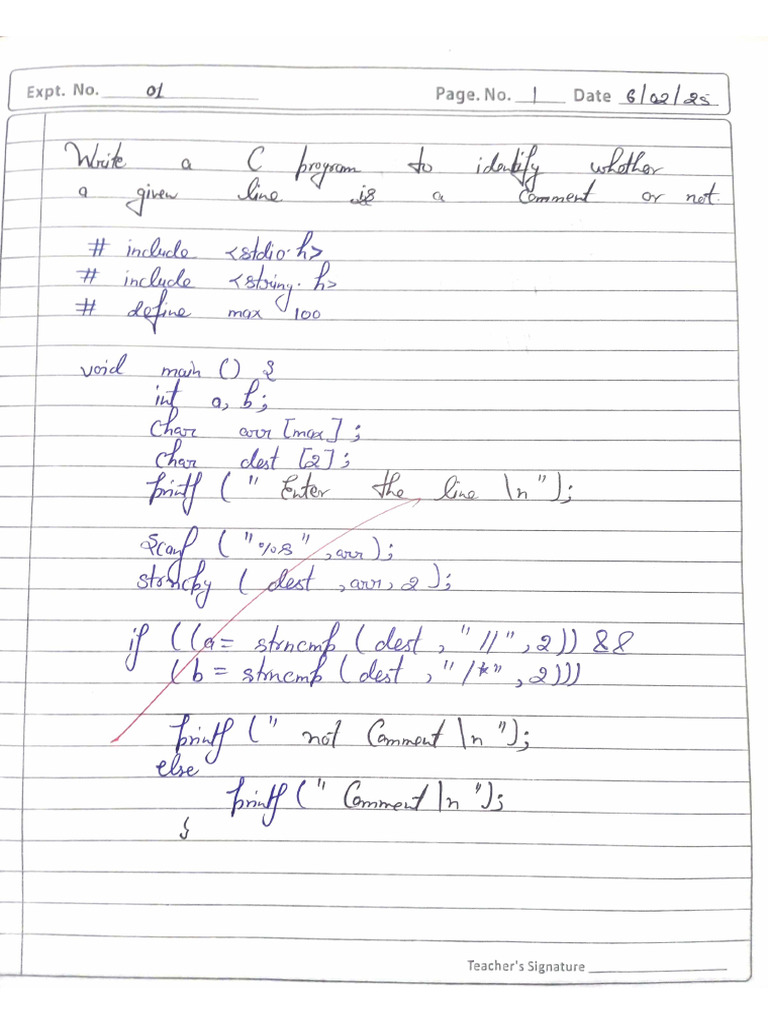 Expt. No. 01 Page. No. 1 Date 6/02/25
Write a C program to identify whether
a given line is a Comment or not.
# include <stdio.h>
# include <string.h>
# define max 100
void main () {
int a, b;
char arr [max];
char dest [2];
printf (" Enter the line \n");
scanf ("%s", arr);
strncpy ( dest, arr, 2 );
if ((a = strncmp (dest, "//", 2)) &&
(b = strncmp (dest, "/*", 2)))
printf (" not Comment \n ");
else
printf (" Comment \n ");
}
Teacher's Signature